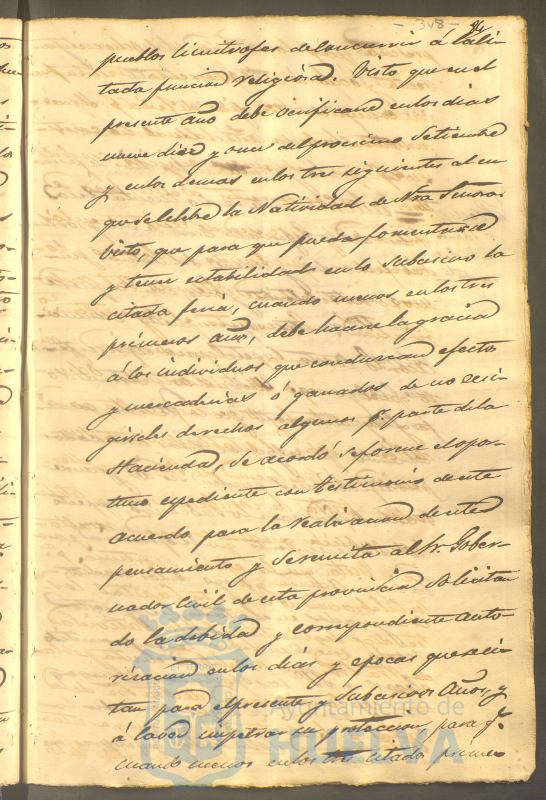 - 348 - 34
pueblos limitrofes de concurrir á la ci-
tada funcion religiosa. Visto que en el
presente año debe verificarse en los dias
nueve diez y once del procsimo Setiembre
y en los demas en los tres siguientes al en
que se celebre la Natividad de Ntra Senora
Visto, que para que pueda fomentarse
y tener estabilidad en lo subcesivo la
citada feria, cuando menos en los tres
primeros años, debe hacerse la gracia
á los individuos que conduzcan efectos
y mercaderias ó ganados de no ecsi-
girseles derechos algunos pr parte de la
Hacienda, se acordó se forme el opor-
tuno espediente con testimonio de este
acuerdo para la realizacion de este
pensamiento y se remita al Sr. Gober-
nador Civil de esta provincia solicitan
do la debida y correspondiente auto-
rizacion en los dias y epocas que se ci-
tan para el presente y subcesivos años, y
á la vez impetrar su proteccion para qe
cuando menos en los tres citados prime-
Ayuntamiento de
HUELVA